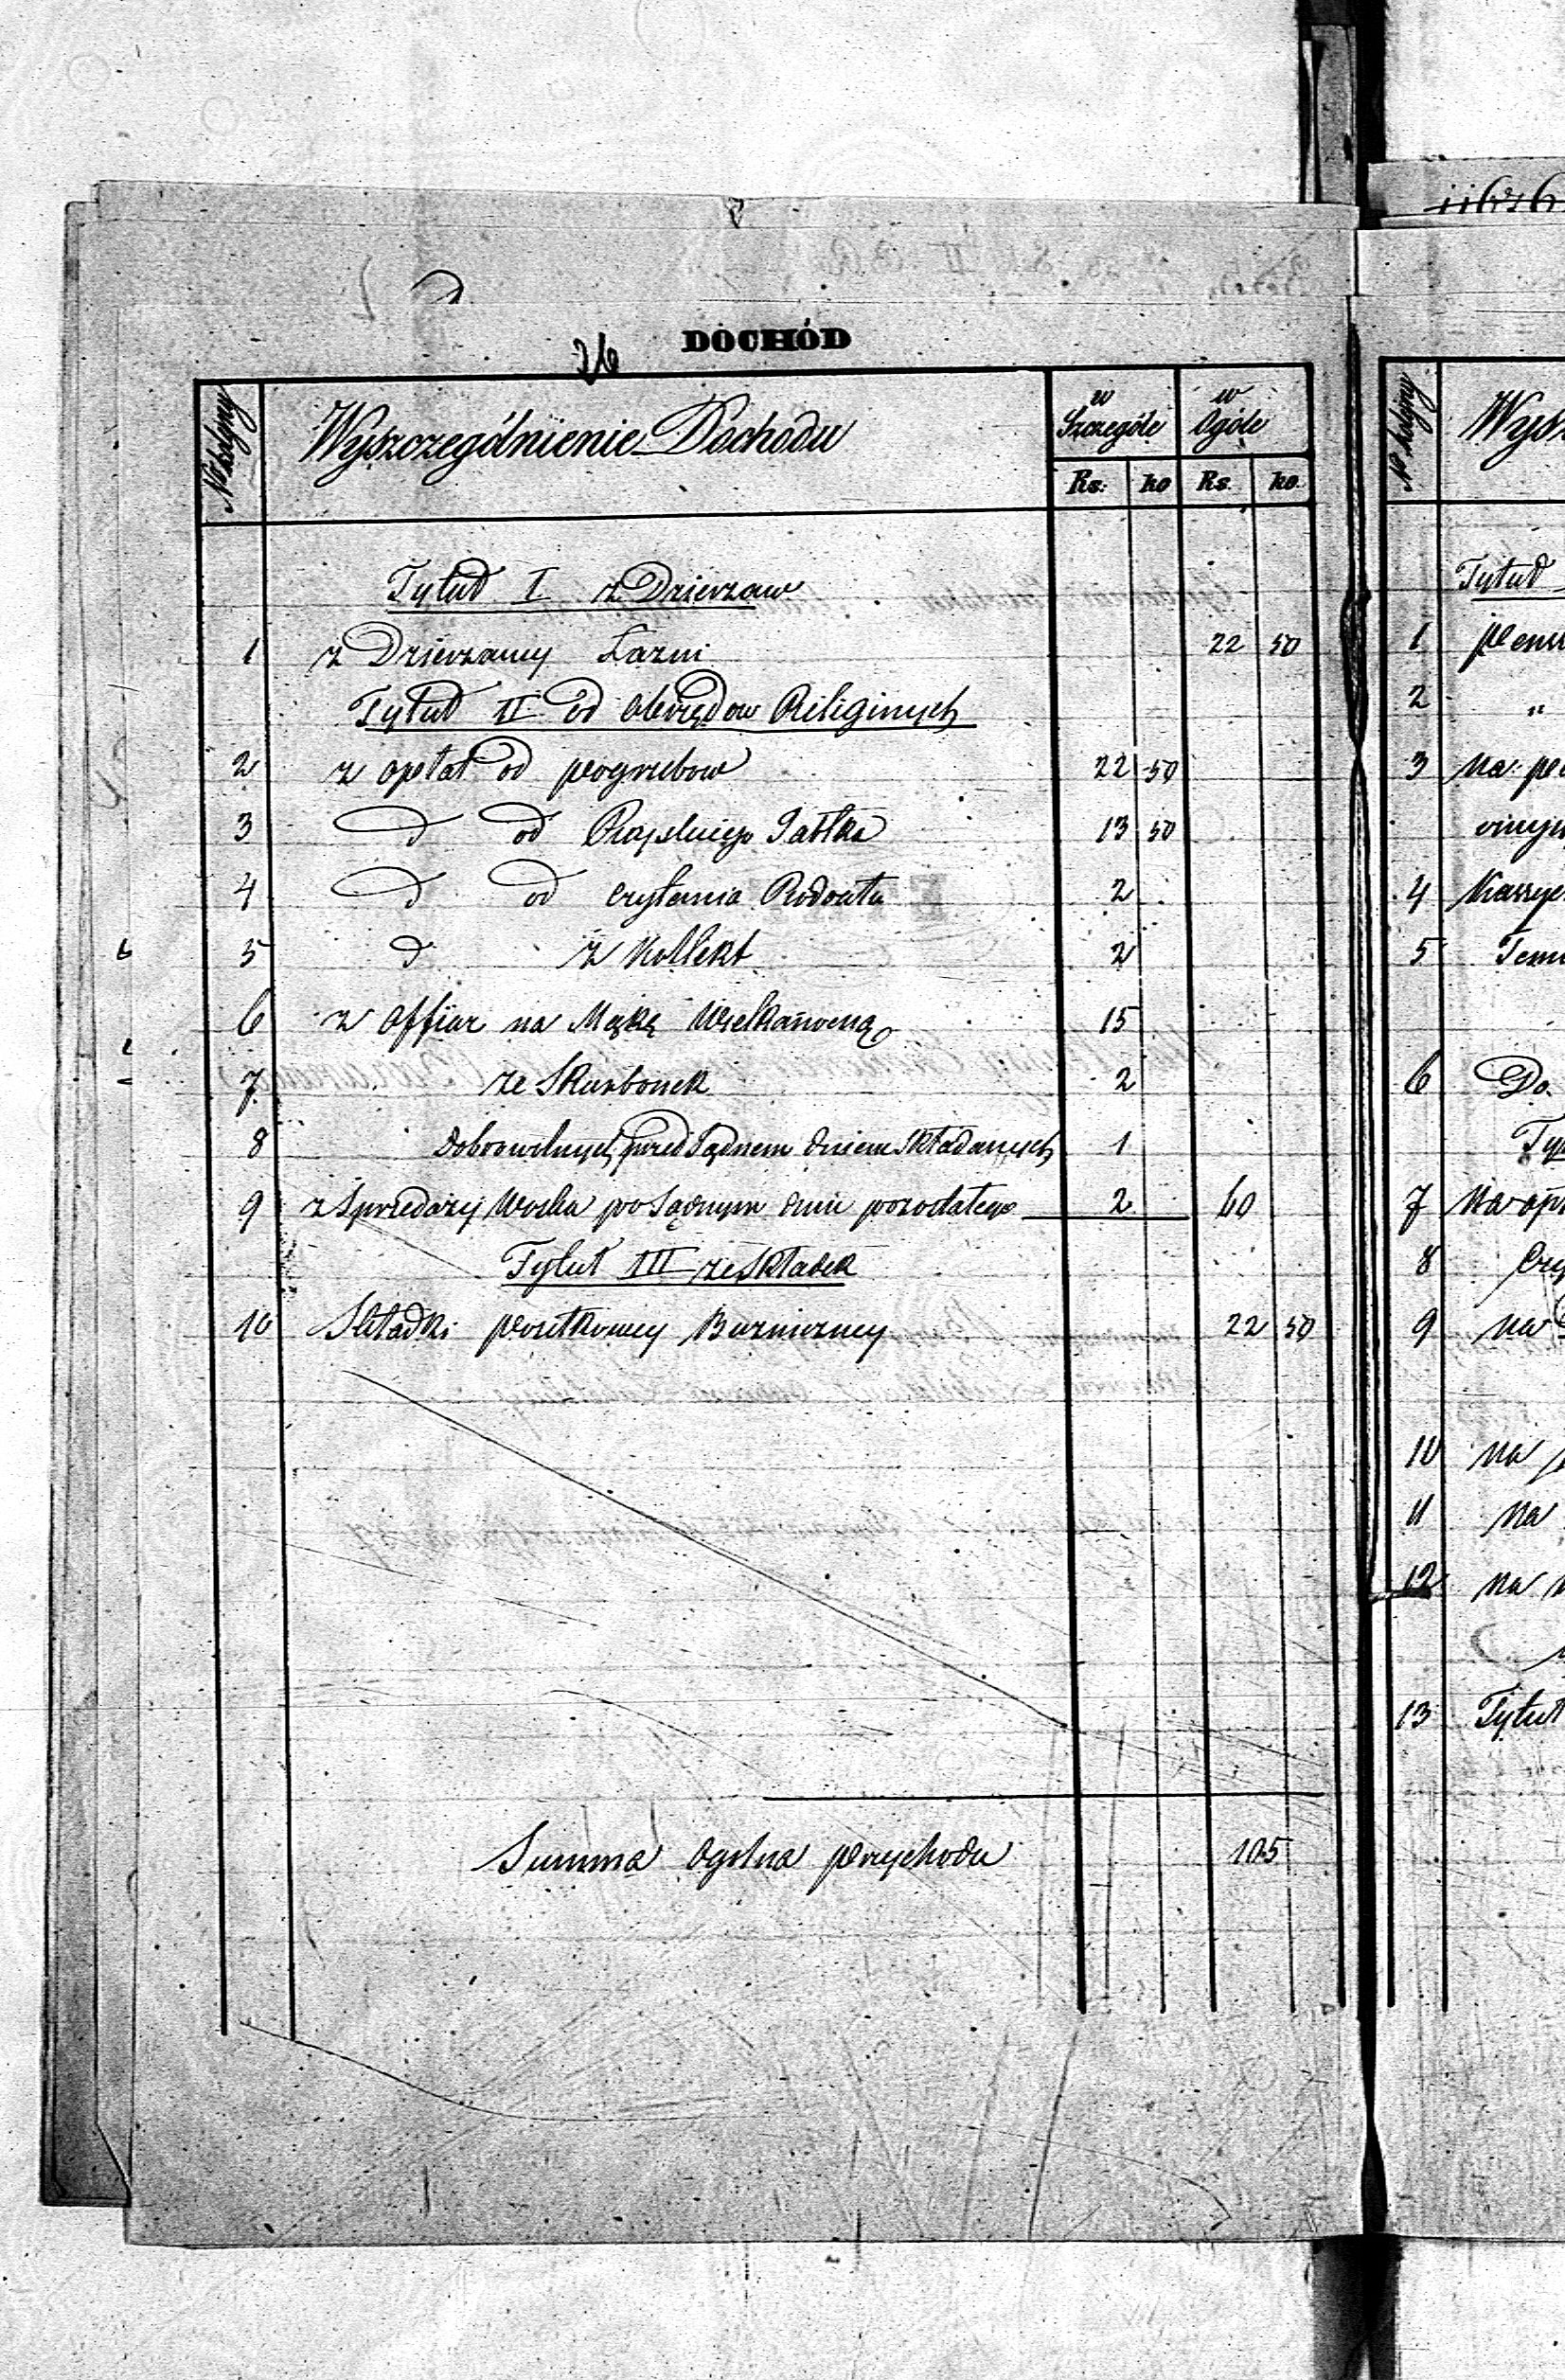 DOCHÓD
26
No kolejny Wyszczególnienie Dochodu w Szczególe w Ogóle
Rs: ko Rs. ko.
Tytuł I z Dzierzaw
1 z Dzierzawy Łazni 22 50
Tytuł II od obrzędow Religinych
2 z opłat od pogrzebow 22 50
3 d od Rayskiego Jabłka 13 50
4 d od czytania Rodoału 2
5 d z Kollekt 2
6 z offiar na Mąkę Wielkanocną 15
7 ze Skarbonek 2
8 Dobrowolnych przed Sądnem dniem składanych 1
9 z Sprzedazy Wosku po Sądnym dniu pozostałego 2 60
Tytuł III ze Składek
10 Składki Bozniczney 22 50
Summa Ogolna przychodu 105
No kolejny
Tytuł
1
2 "
3 na
4
5
6 Do
7 Na
8
9 na
10 na
11 na
12 na
13 Tytuł